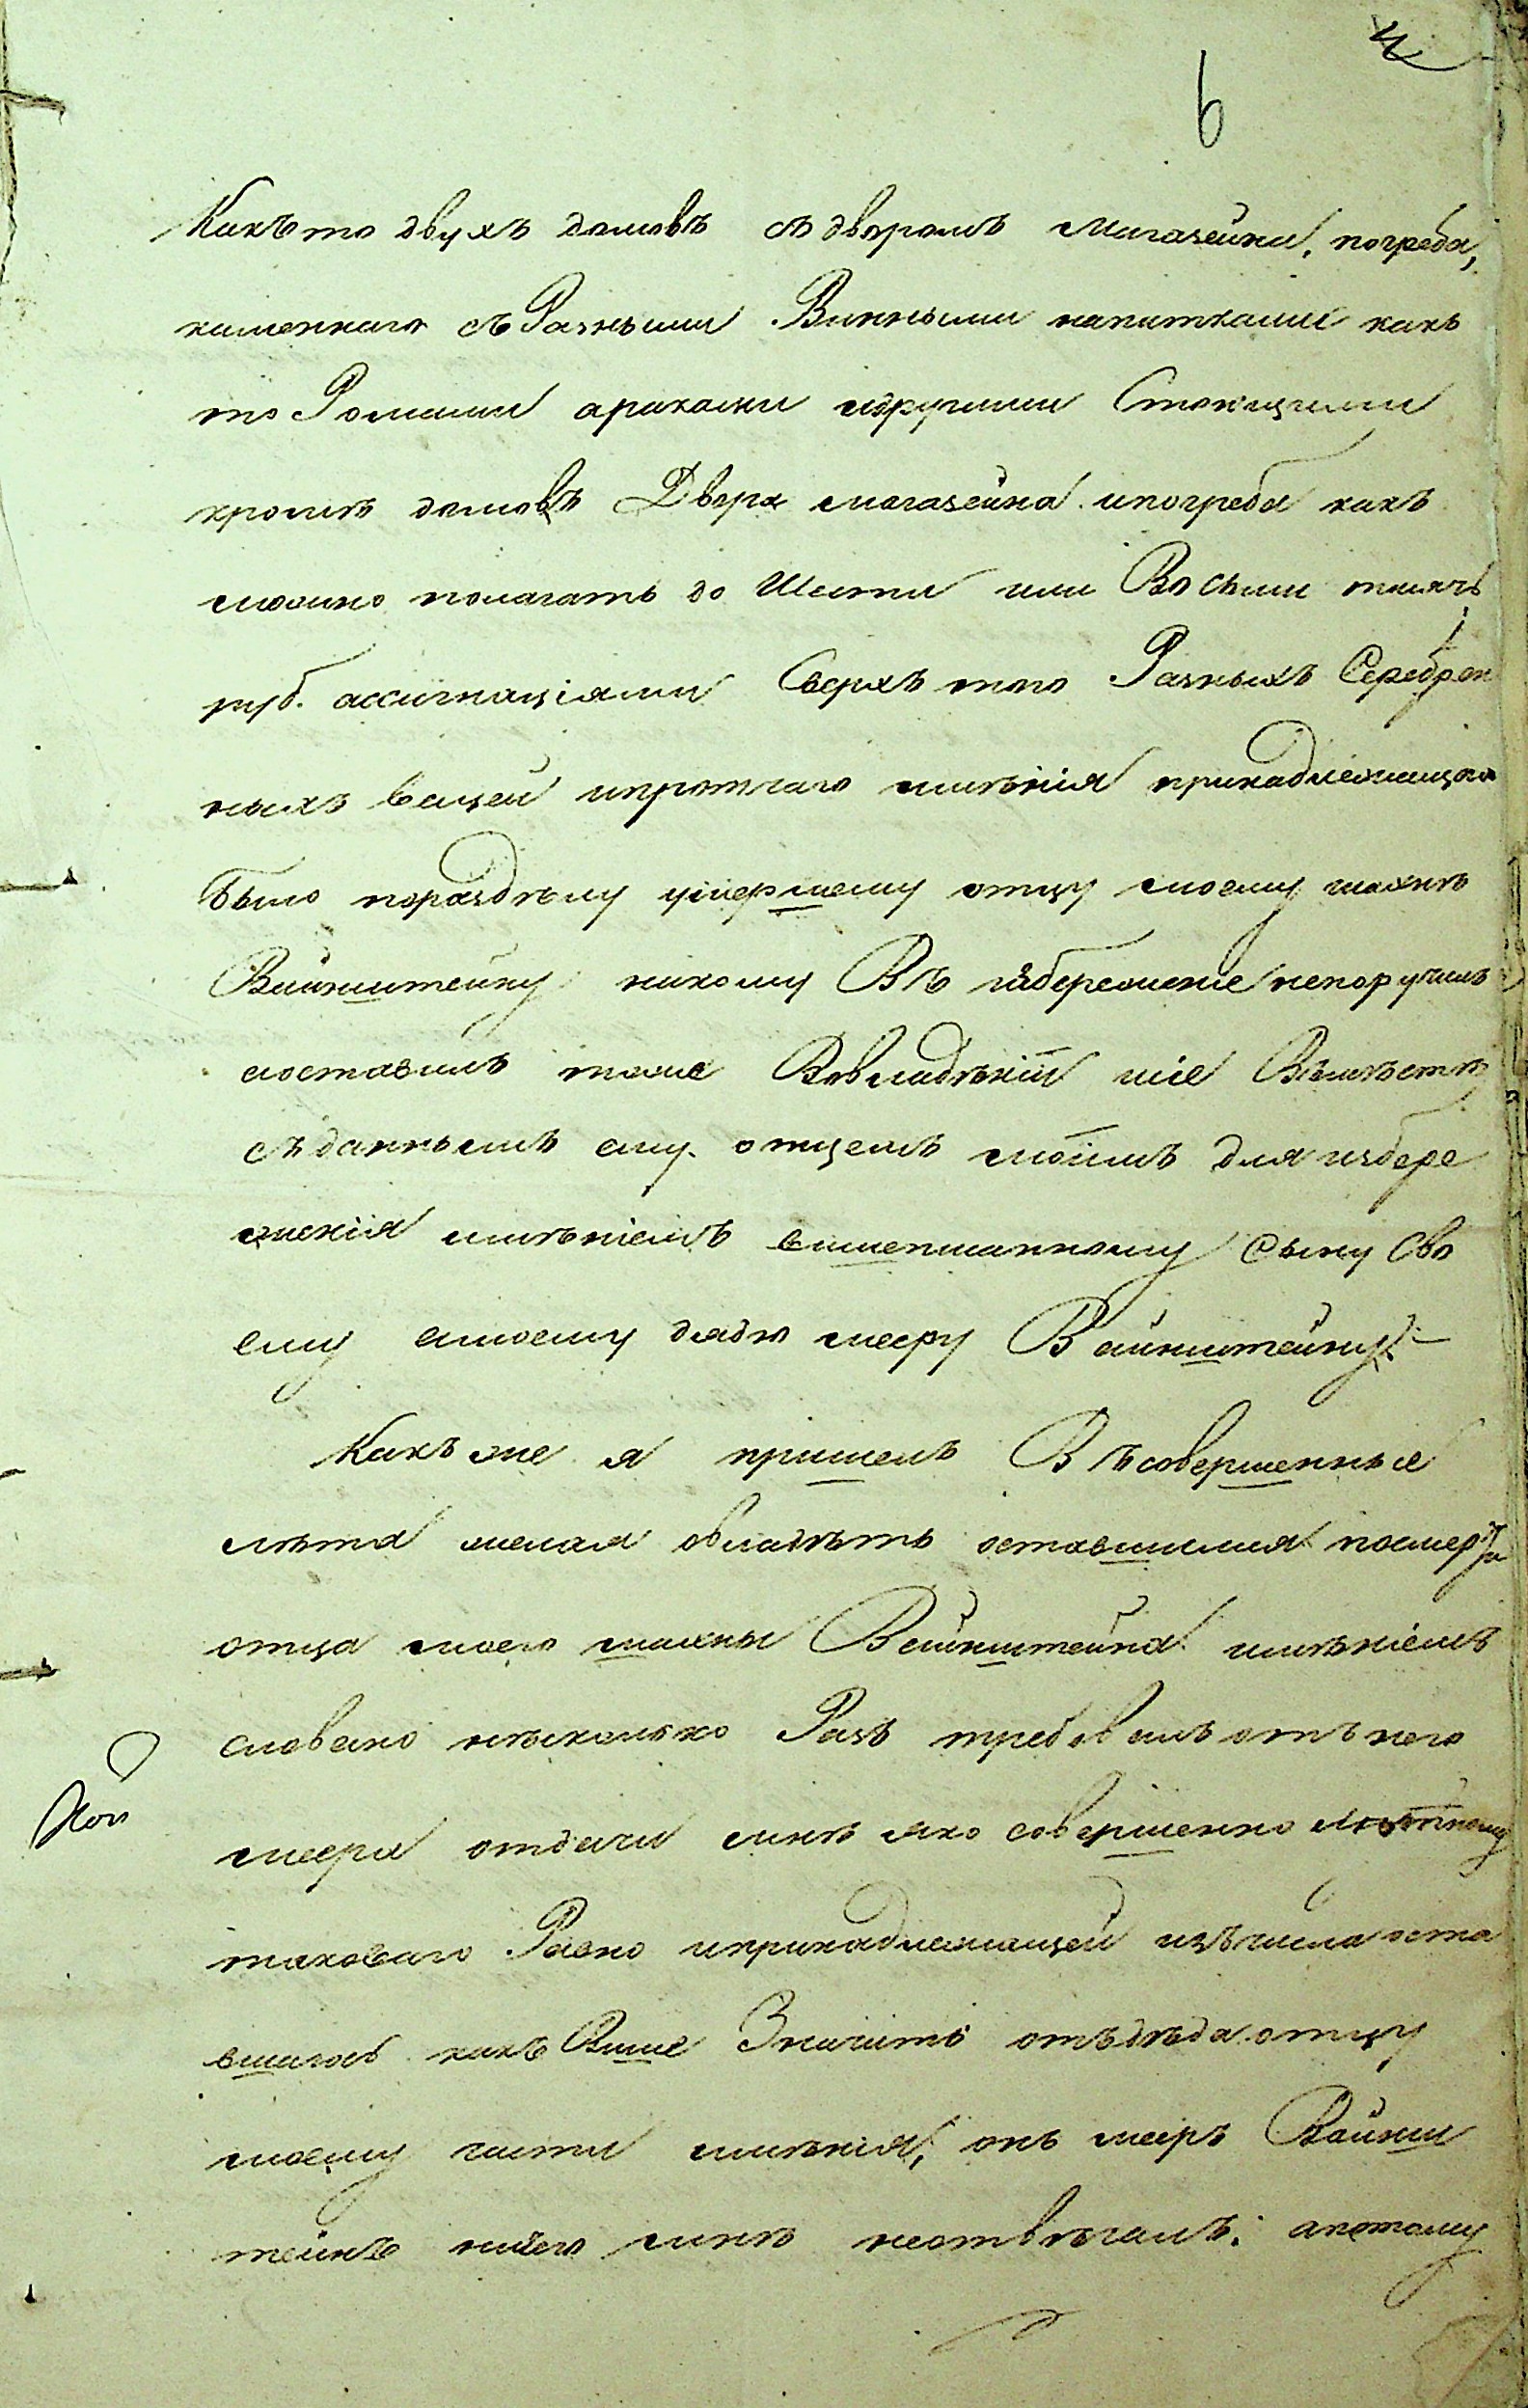 6
Какъ то двухъ домовъ съ дворомъ магазейна, погреба,
каменнаго съ Разными Винными напитками какъ
то Ромами араками идругими Стоющими
кромѣ домовъ Двора магазейна ипогреба какъ
можно полагать до Шести или Восьми тысячь
руб. ассигнаціями Сверхъ того Разныхъ Серебрен
ныхъ вещей ипротчаго имѣнія принадлежащаго
было пораздѣлу умершему отцу моему
Вайнштейну никому Въ избереженіе непоручилъ
иоставилъ тоже Вовладѣніи Вмѣстѣ
съ даннымъ ему отцемъ моимъ для избере
женія имѣніемъ вышеписанному Сыну Сво
ему амоему дядю мееру Вайнштейну.
Какъ же я пришелъ Въ совершенные
лѣта желая обладѣть оставшимся
отца моего Вайнштейна имѣніемъ
словесно нѣсколько Разъ требовалъ отъ него
меера отдачи мнѣ яко совершенно лѣтнему
таковаго Равно ипринадлежащей изъ числа оста
вшагось какъ Выше Значитъ отъ дѣда отцу
моему части имѣнія, онъ меіръ Вайнш
тейнъ ничего мнѣ неотвѣчалъ. апотому